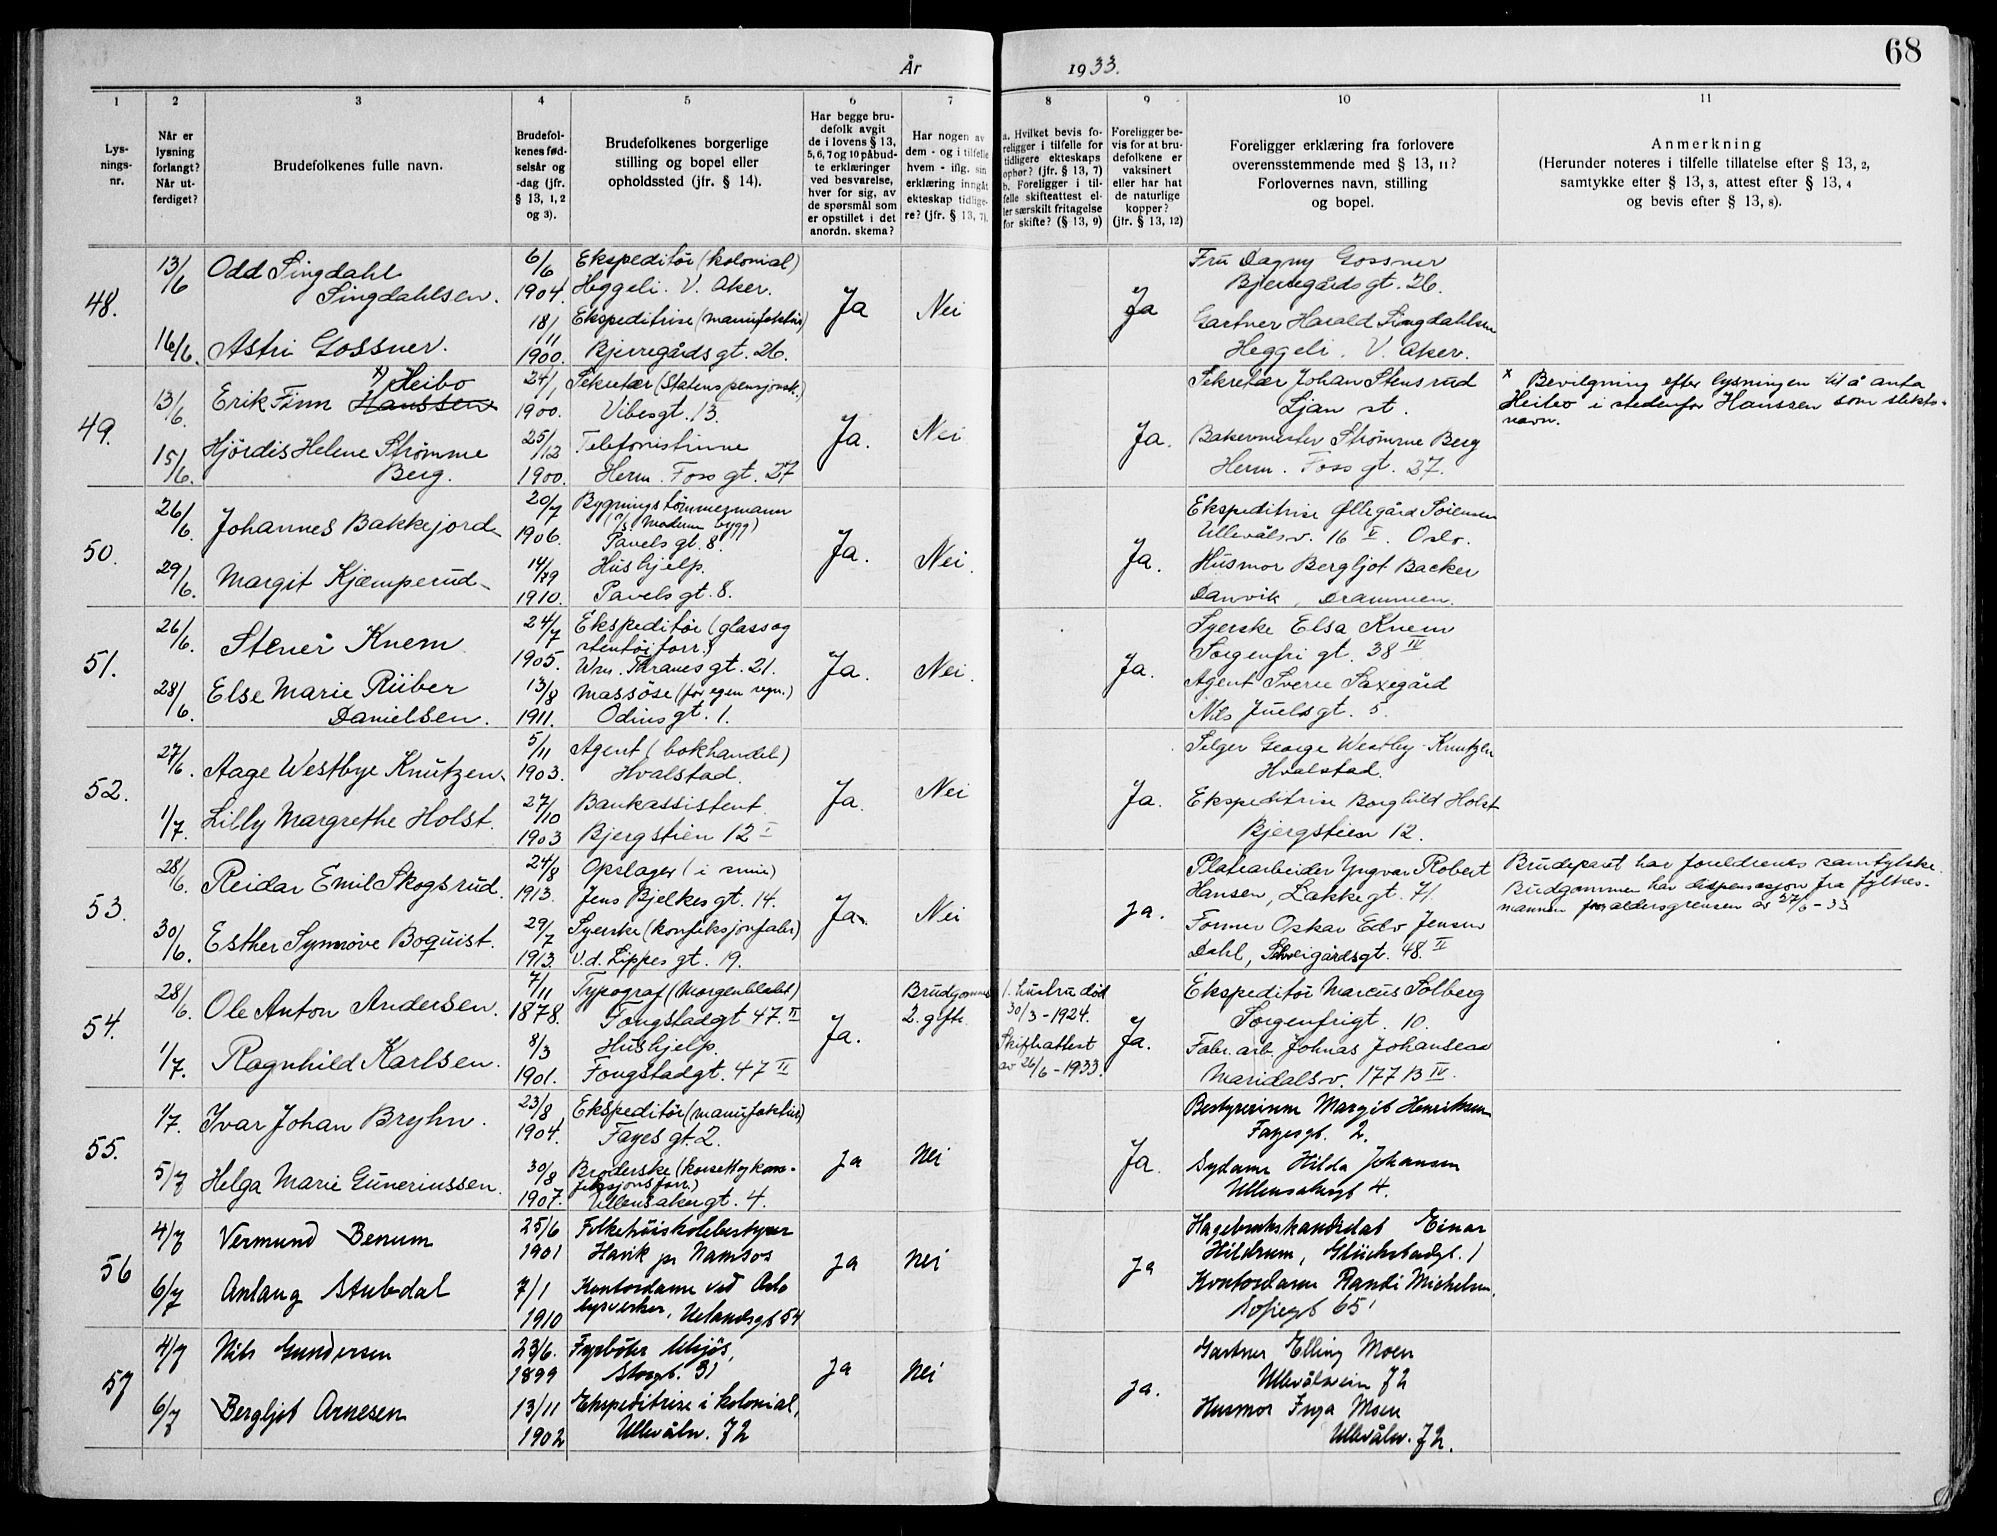 68
År 1933.
1 2 3 4 5 6 7 8 9 10 11
Lys-
nings-
nr.
Når er
lysning
forlangt?
Når ut-
ferdiget?
Brudefolkenes fulle navn.
Brudefol-
kenes fød-
selsår og
-dag (jfr.
§ 13, 1, 2
og 3).
Brudefolkenes borgerlige
stilling og bopel eller
opholdssted (jfr. § 14).
Har begge bru-
defolk avgit
de i lovens § 13,
5, 6, 7 og 10 påbud-
te erklæringer
ved besvarelse,
hver for sig, av
de spørsmål som
er opstillet i det
anordn. skema?
Har nogen av
dem - og i tilfelle
hvem - iflg. sin
erklæring inngåt
ekteskap tidlige-
re? (jfr. § 13, 7).
a. Hvilket bevis fo-
religger i tilfelle for
tidligere ekteskaps
ophør? (jfr. § 13, 7)
b. Foreligger i til-
felle skifteattest el-
ler særskilt fritagelse
for skifte? (§ 13, 9)
Foreligger be-
vis for at bru-
defolkene er
vaksinert
eller har hat
de naturlige
kopper?
(jfr. § 13, 12)
Foreligger erklæring fra forlovere
overensstemmende med § 13, 11?
Forlovernes navn, stilling
og bopel.
Anmerkning
(Herunder noteres i tilfelle tillatelse efter § 13, 2,
samtykke efter § 13, 3, attest efter § 13, 4
og bevis efter § 13, 8).
48.
13/6
16/6.
Odd Singdahl
Singdahlsen.
Astri Gossner.
6/6
1904.
18/11
1900.
Ekspeditör (kolonial)
Heggeli. V. Aker.
Ekspeditrise (manufaktur)
Bjerregårds gt. 26.
Ja
Nei
Ja
Fru Dagny Gossner
Bjerregårds gt. 26.
Gartner Harald Singdahlsen
Heggeli. V. Aker.
49.
13/6.
15/6.
x) Heibo
Erik Finn Hanssen
Hjördis Helene Strømme
Berg.
24/1
1900.
25/12
1900.
Sekretær (Statens pensjonsk.)
Vibesgt. 13.
Telefonistinne
Herm. Foss gt. 27
Ja.
Nei
Ja.
Sekretær Johan Stensrud
Ljan st.
Bakermester Strømme Berg
Herm. Foss gt. 27.
x Bevilgning efter lysningen til å anta
Heibo i stedenfor Hanssen som slekts-
navn.
50.
26/6.
29/6.
Johannes Bakkejord
Margit Kjæmperud
20/7
1906.
14/
1910.
Bygningstömmermann
(A/S Modern bygg)
Pavels gt. 8.
Hushjelp.
Pavels gt. 8.
Ja.
Nei.
Ja.
Ekspeditrise Øllegård Sörensen
Ullevålsv. 16 V. Oslo.
Husmor Bergljot Backer
Danvik, Drammen.
51.
26/6.
28/6.
Stener Knem
Else Marie Riiber
Danielsen.
24/7
1905.
13/8
1911.
Ekspeditör (glass og
stentöiforr.)
Wm. Thranes gt. 21.
Massöse (for egen regn.)
Odins gt. 1.
Ja.
Nei.
Ja.
Syerske Elsa Knem
Sorgenfri gt. 38 IV
Agent Sverre Saxegård
Nils Juels gt. 5.
52.
27/6.
1/7.
Aage Westbye Knutzen.
Lilly Margrethe Holst.
5/11
1903.
27/10
1903
Agent (bokhandel)
Hvalstad.
Bankassistent.
Bjergstien 12 I
Ja.
Nei
Ja.
Selger George Westby-Knutzen
Hvalstad.
Ekspeditrise Borghild Holst
Bjergstien 12.
53.
28/6.
30/6.
Reidar Emil Skogsrud.
Esther Synnöve Boquist.
24/8
1913.
29/7
1913.
Opslager (i smie)
Jens Bjelkes gt. 14.
Syerske (konfeksjonfabr)
v.d. Lippes gt. 19.
Ja.
Nei
Ja.
Platearbeider Yngvar Robert
Hansen, Lakkegt. 71.
Former Oskar Edv Jensen
Dahl, Schweigårdsgt. 48. II
Brudeparet har foreldrenes samtykke.
Brudgommen har dispensasjon fra fylkes-
mannen for aldersgrensen av 27/6-33
54.
28/6.
1/7.
Ole Anton Andersen.
Ragnhild Karlsen.
7/11
1878.
8/3
1901.
Typograf (Morgenbladet)
Fougstadgt 47. II
Hushjelp.
Fougstadgt. 47 II
Ja.
Brudgommens
2. gifte.
1. hustru död
30/3-1924.
Skifteattest
av 26/6-1933.
Ja.
Ekspeditör Marcus Solberg
Sorgenfrigt. 10.
Fabr.arb. Johnas Johansen
Maridalsv. 177 B IV.
55.
1/7.
5/7
Ivar Johan Bryhn.
Helga Marie Guneriussen.
23/8
1904.
30/8
1907.
Ekspeditör (manufaktur)
Fayes gt. 2.
Broderske (korsett og kon-
feksjonsforr.)
Ullensakergt. 4.
Ja
Nei
Ja.
Bestyrerinne Margit Henriksen
Fayesgt. 2.
Sydame Hilda Johansen
Ullensakergt 4.
56
4/7
6/7
Vermund Benum
Anlaug Stubdal
25/6
1901
7/1
1910
Folkehöiskolebestyrer
Havik pr Namsos
Kontordame ved Oslo
lysverker, Uelandsgt 54
Ja
Nei
Ja
Hagebrukskandidat Einar
Hildrum, Glückstadgt. 1
Kontordame Randi Michelsen.
Sofiegt 65 I
57
4/7
6/7
Nils Gundersen
Bergljot Arnesen
23/6.
1899
13/11
1902
Fyrböter Mysjös,
Storgt. 31
Ekspeditrise i kolonial,
Ullevålsv. 72
Ja
Nei
Ja.
Gartner Elling Moen
Ullevålsveien 72
Husmor Inga Moen
Ullevålsv. 72.